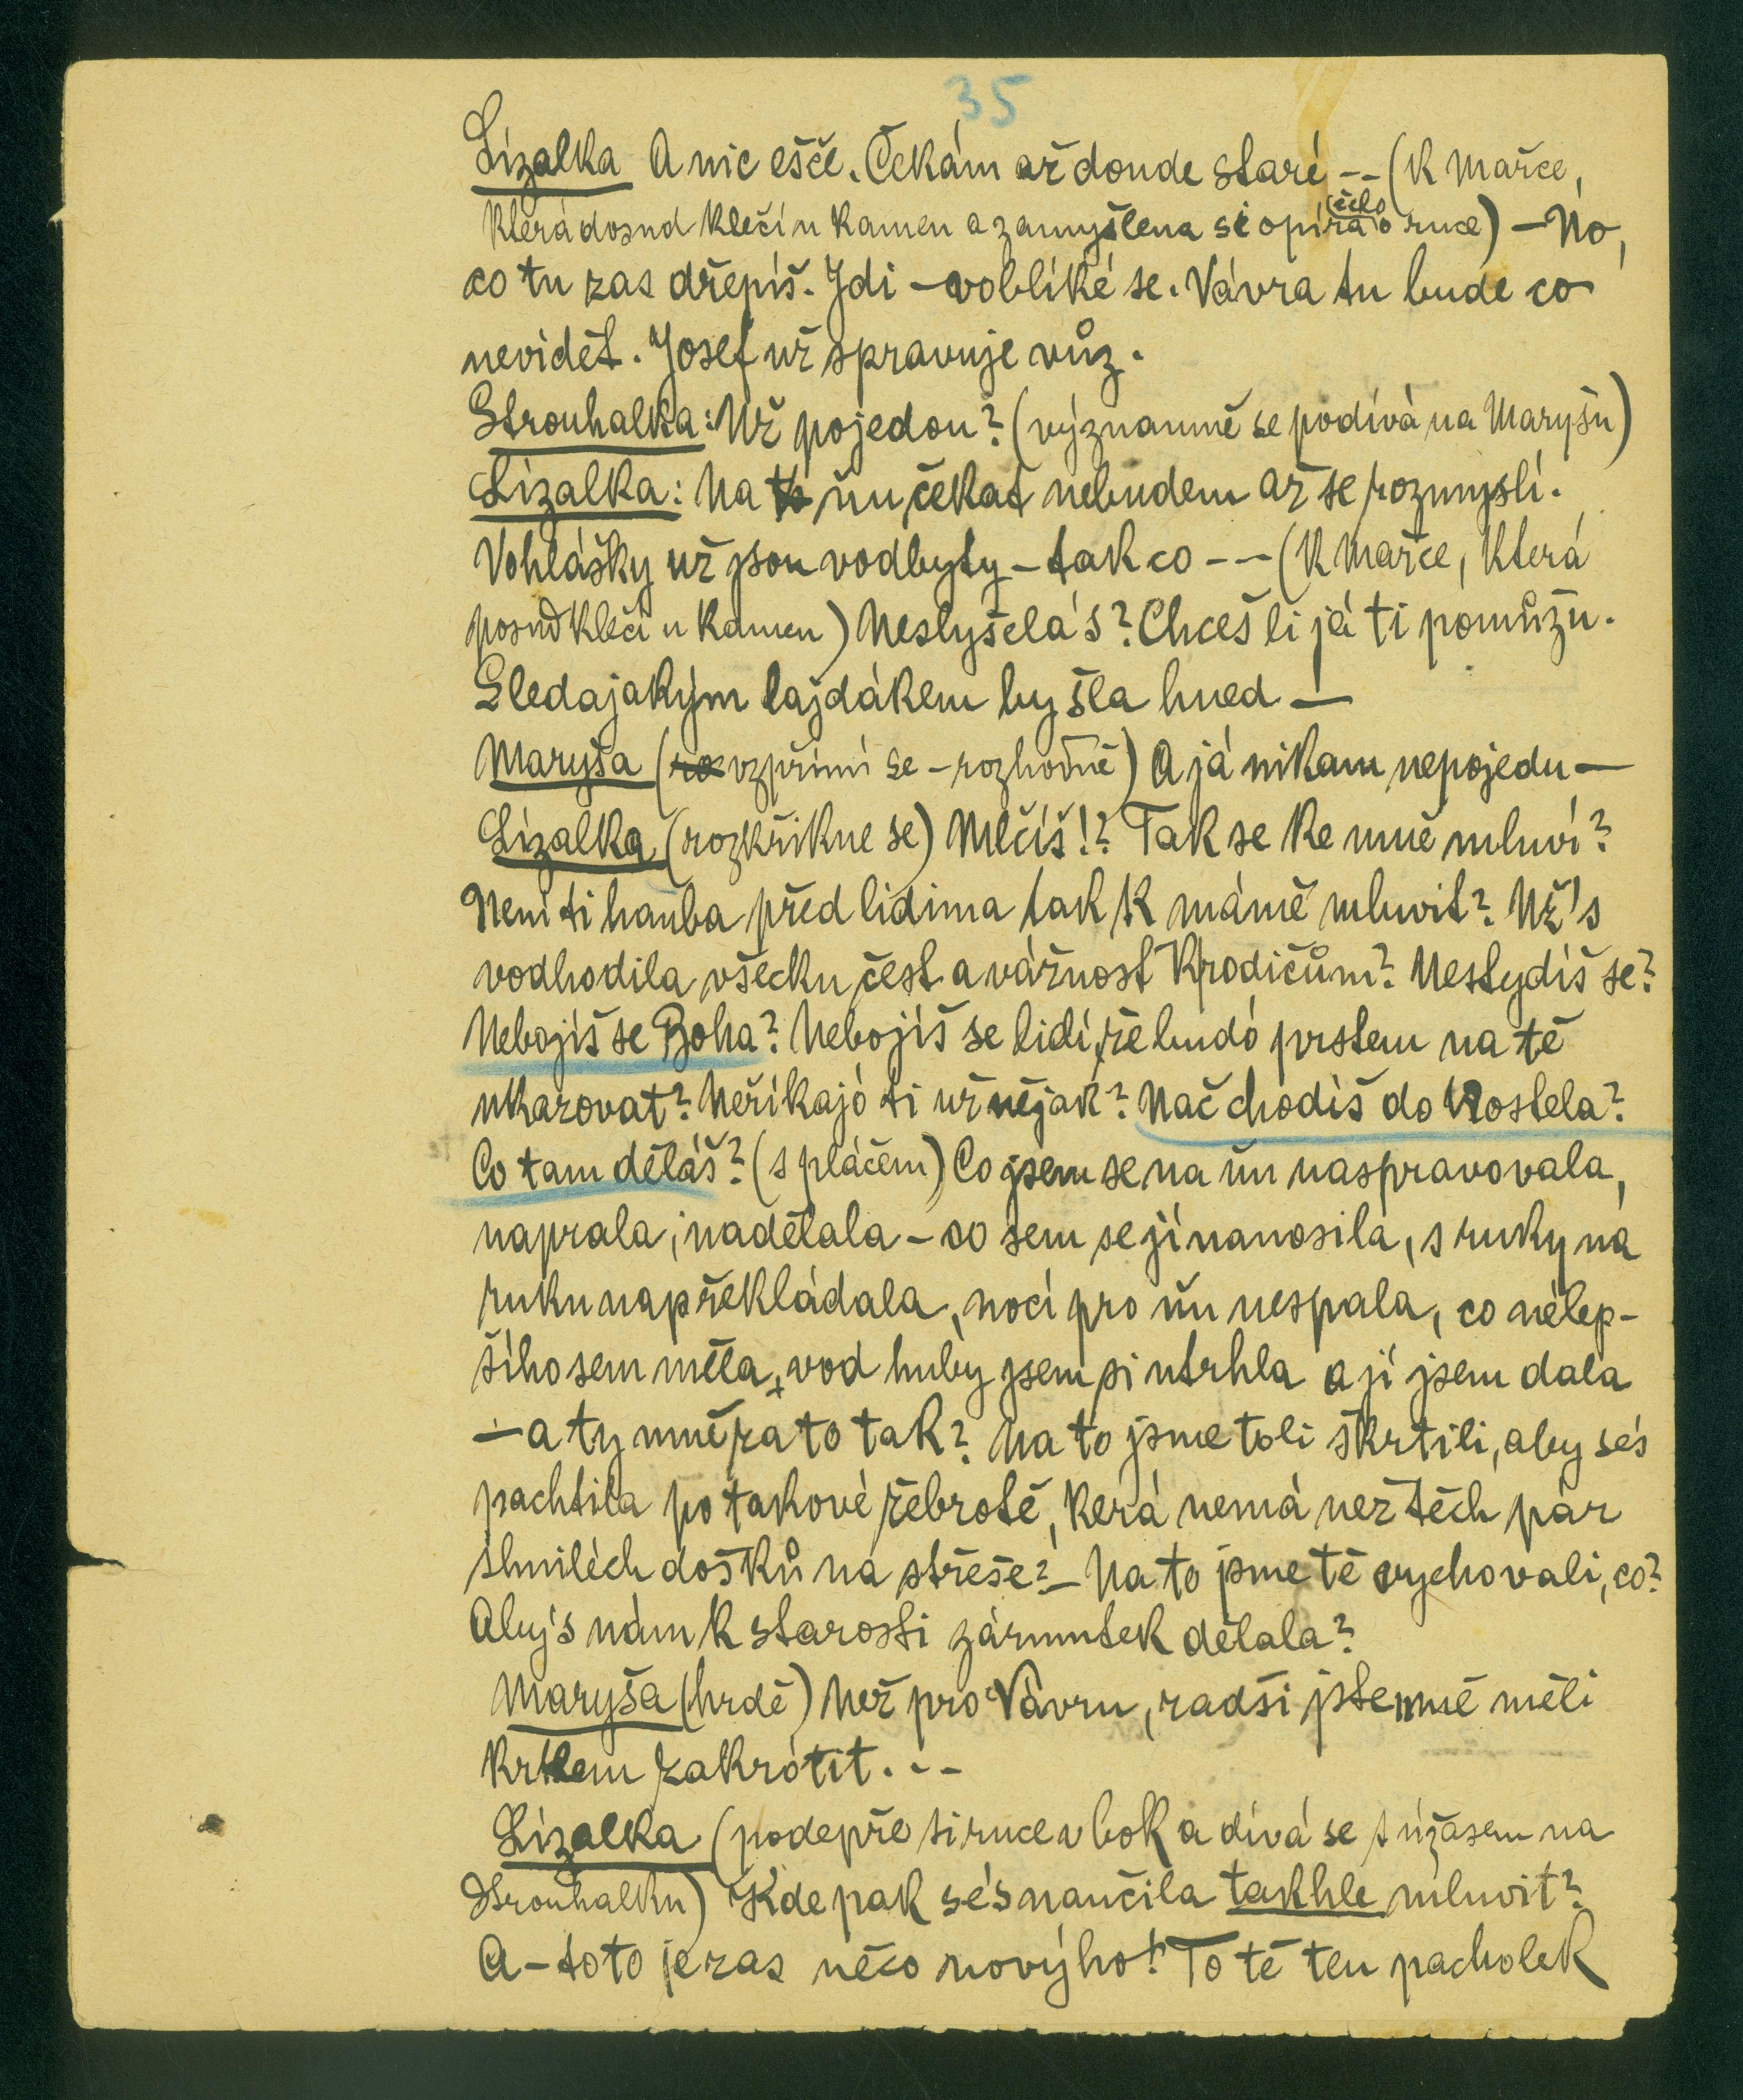 35
Lízalka A nic ešče. Čekám až donde staré -- (k Mařce,
čelo
která dosud klečí u kamen a zamyšlena si opírá o ruce) - No,
co tu zas dřepíš. Jdi - voblíké se. Vávra tu bude co
nevidět. Josef už spravuje vůz.
Strouhalka: Už pojedou? (významně se podívá na Maryšu)
Lízalka: Na ňu čekat nebudem až se rozmyslí.
Vohlášky už jsou vodbyty - tak co --- (k Mařce, která
posud klečí u kamen) Neslyšela's? Chceš li já ti pomůžu.
Gledajakým lajdákem by šla hned -
Maryša (ro vzpřímí se - rozhodně) A já nikam nepojedu -
Lízalka (rozkřikne se) Mlčíš!? Tak se ke mně mluví?
Není ti haňba před lidima tak k mámě mluvit? Už's
vodhodila všecku čest a vážnost k rodičům? Nestydíš se?
Nebojíš se Boha? Nebojíš se lidí, že budó prstem na tě
ukazovat? Neříkajó ti už nějak? Nač chodíš do kostela?
Co tam děláš? (s pláčem) Co jsem se na ňu naspravovala,
naprala, nadělala - co sem se jí nanosila, s ruky na
ruku napřekládala, nocí pro ňu nespala, co nélep-
šího sem měla, vod huby jsem si utrhla a jí jsem dala
- a ty mně za to tak? Na to jsme toli škrtili, aby se's
pachtila po takové žebrotě, kerá nemá než těch pár
shniléch došků na střeše? - Na to jsme tě vychovali, co?
Aby's nám k starosti zármutek dělala?
Maryša (hrdě) Než pro Vávru, radši jste mně měli
krkem zakrótit. --
Lízalka (podepře si ruce v bok a dívá se s úžasem na
Strouhalku) Kde pak se's naučila takhle mluvit?
A - toto je zas něco novýho! To tě ten pacholek